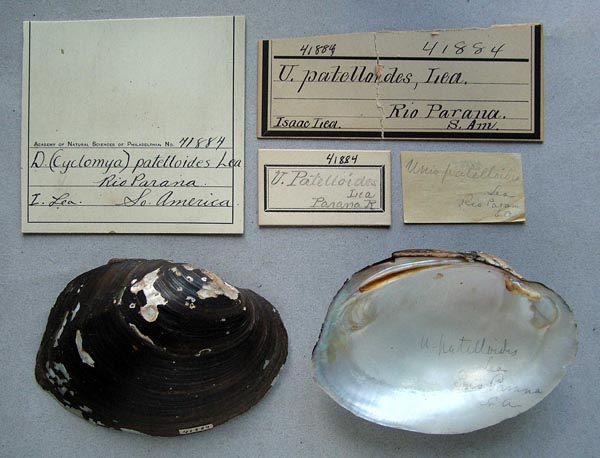 ACADEMY OF NATURAL SCIENCES OF PHILADELPHIA No. 41884
D. (Cyclomya) patelloides Lea
Rio Parana.
I. Lea. So. America.
41884 41884
U. patelloides, Lea.
Rio Parana.
Isaac Lea. S. Am.
41884
U. Patelloides
Lea
Parana R
Unio patelloides
Lea
Rio Parana
S.A
U. patelloides
Lea
Rio Parana
S.A
41884